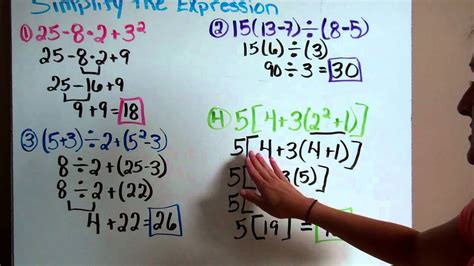 Simplify the Expression
① 25-8·2+3²
25-8·2+9
25-16+9
9+9=18
② 15(13-7)÷(8-5)
15(6)÷(3)
90÷3=30
③ (5+3)÷2+(5²-3)
8÷2+(25-3)
8÷2+(22)
4+22=26
④ 5[4+3(2²+1)]
5[4+3(4+1)]
5[ 3(5)]
5[
5[19]=